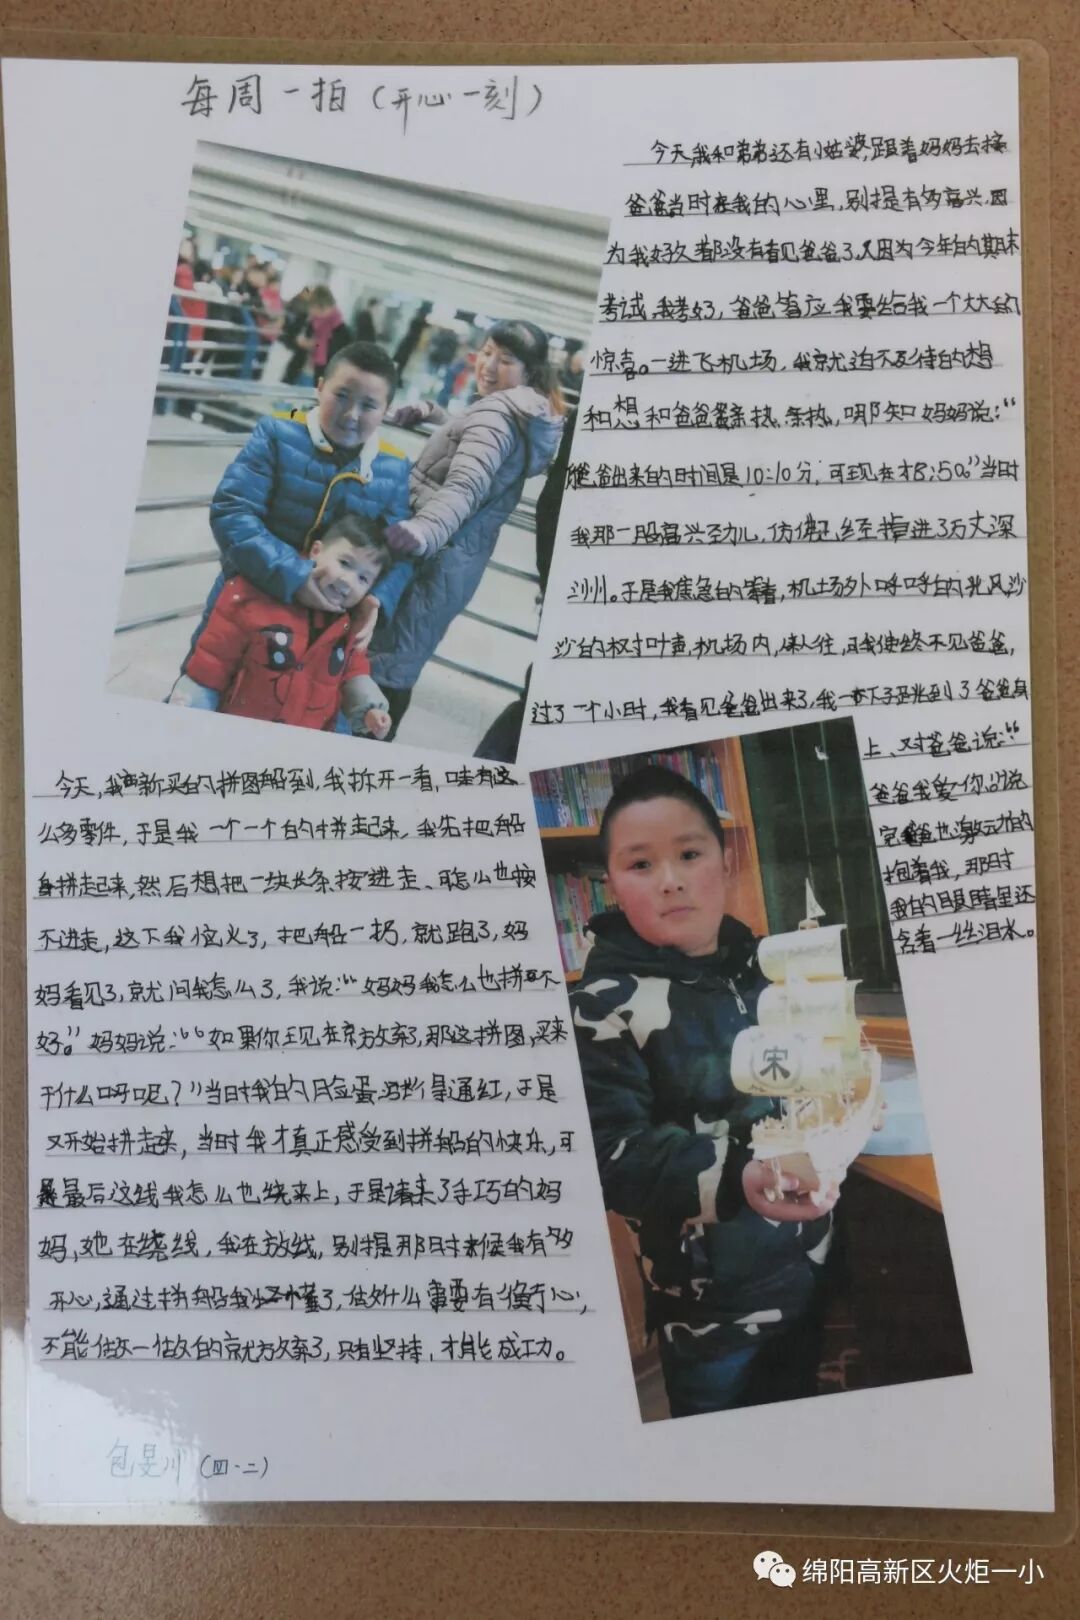 每周一拍（开心一刻）
今天,我和弟弟还有小姑婆,跟着妈妈去接
爸爸当时在我的心里,别提有多高兴,因
为我好久都没有看见爸爸了,又因为今年的期末
考试,我考好,爸爸答应我要给我一个大大的
惊喜。一进飞机场,我就迫不及待的想
和想和爸爸亲热亲热,哪知妈妈说:“
爸出来的时间是10:10分,可现在才8:50。”当时
我那一股高兴劲儿,仿佛已经掉进了万丈深
渊。于是我焦急的等着,机场外呼呼的北风沙
沙的树叶声,机场内,人往,可我使终不见爸爸,
过了一个小时,我看见爸爸出来了,我一下子到了爸爸身
上、对爸爸说:“
爸爸我爱你。”说
完爸爸也激动的
抱着我,那时
我的眼睛里还
含着一丝泪水。
今天,我新买的拼图船到,我拆开一看,哇有这
么多零件,于是我一个一个的拼起来,我先把船
身拼起来,然后想把一块长条按进走、可怎么也按
不进走,这下我恼火了,把船一扔,就跑了,妈
妈看见了,就问我怎么了,我说:“妈妈我怎么也拼不
好。”妈妈说:“如果你现在放弃了,那这拼图,买来
干什么呢?”当时我的脸蛋得通红,于是
又开始拼起来,当时我才真正感受到拼船的快乐,可
是最后这线我怎么也绕来上,于是请来了手巧的妈
妈,她在绕线,我在放线,别提那时候我有多
开心,通过拼船我懂了,做什么事要有心,
不能做一做的就放弃了,只有坚持,才能成功。
包旻川（四·二）
绵阳高新区火炬一小